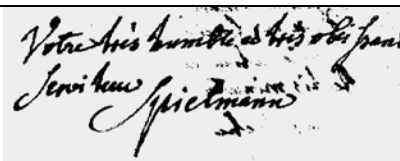 Votre très humble et très obeissant
Serviteur
Spielmann